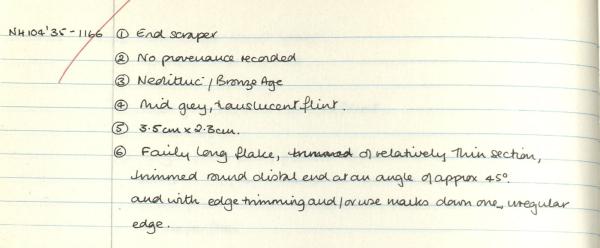 NH104'35-1166 ① End scraper
② No provenance recorded
③ Neolithic / Bronze Age
④ Mid grey, translucent flint.
⑤ 3.5cm x 2.3cm.
⑥ Fairly long flake, trimmed of relatively thin section,
trimmed round distal end at an angle of approx 45°.
and with edge trimming and/or use marks down one, irregular
edge.